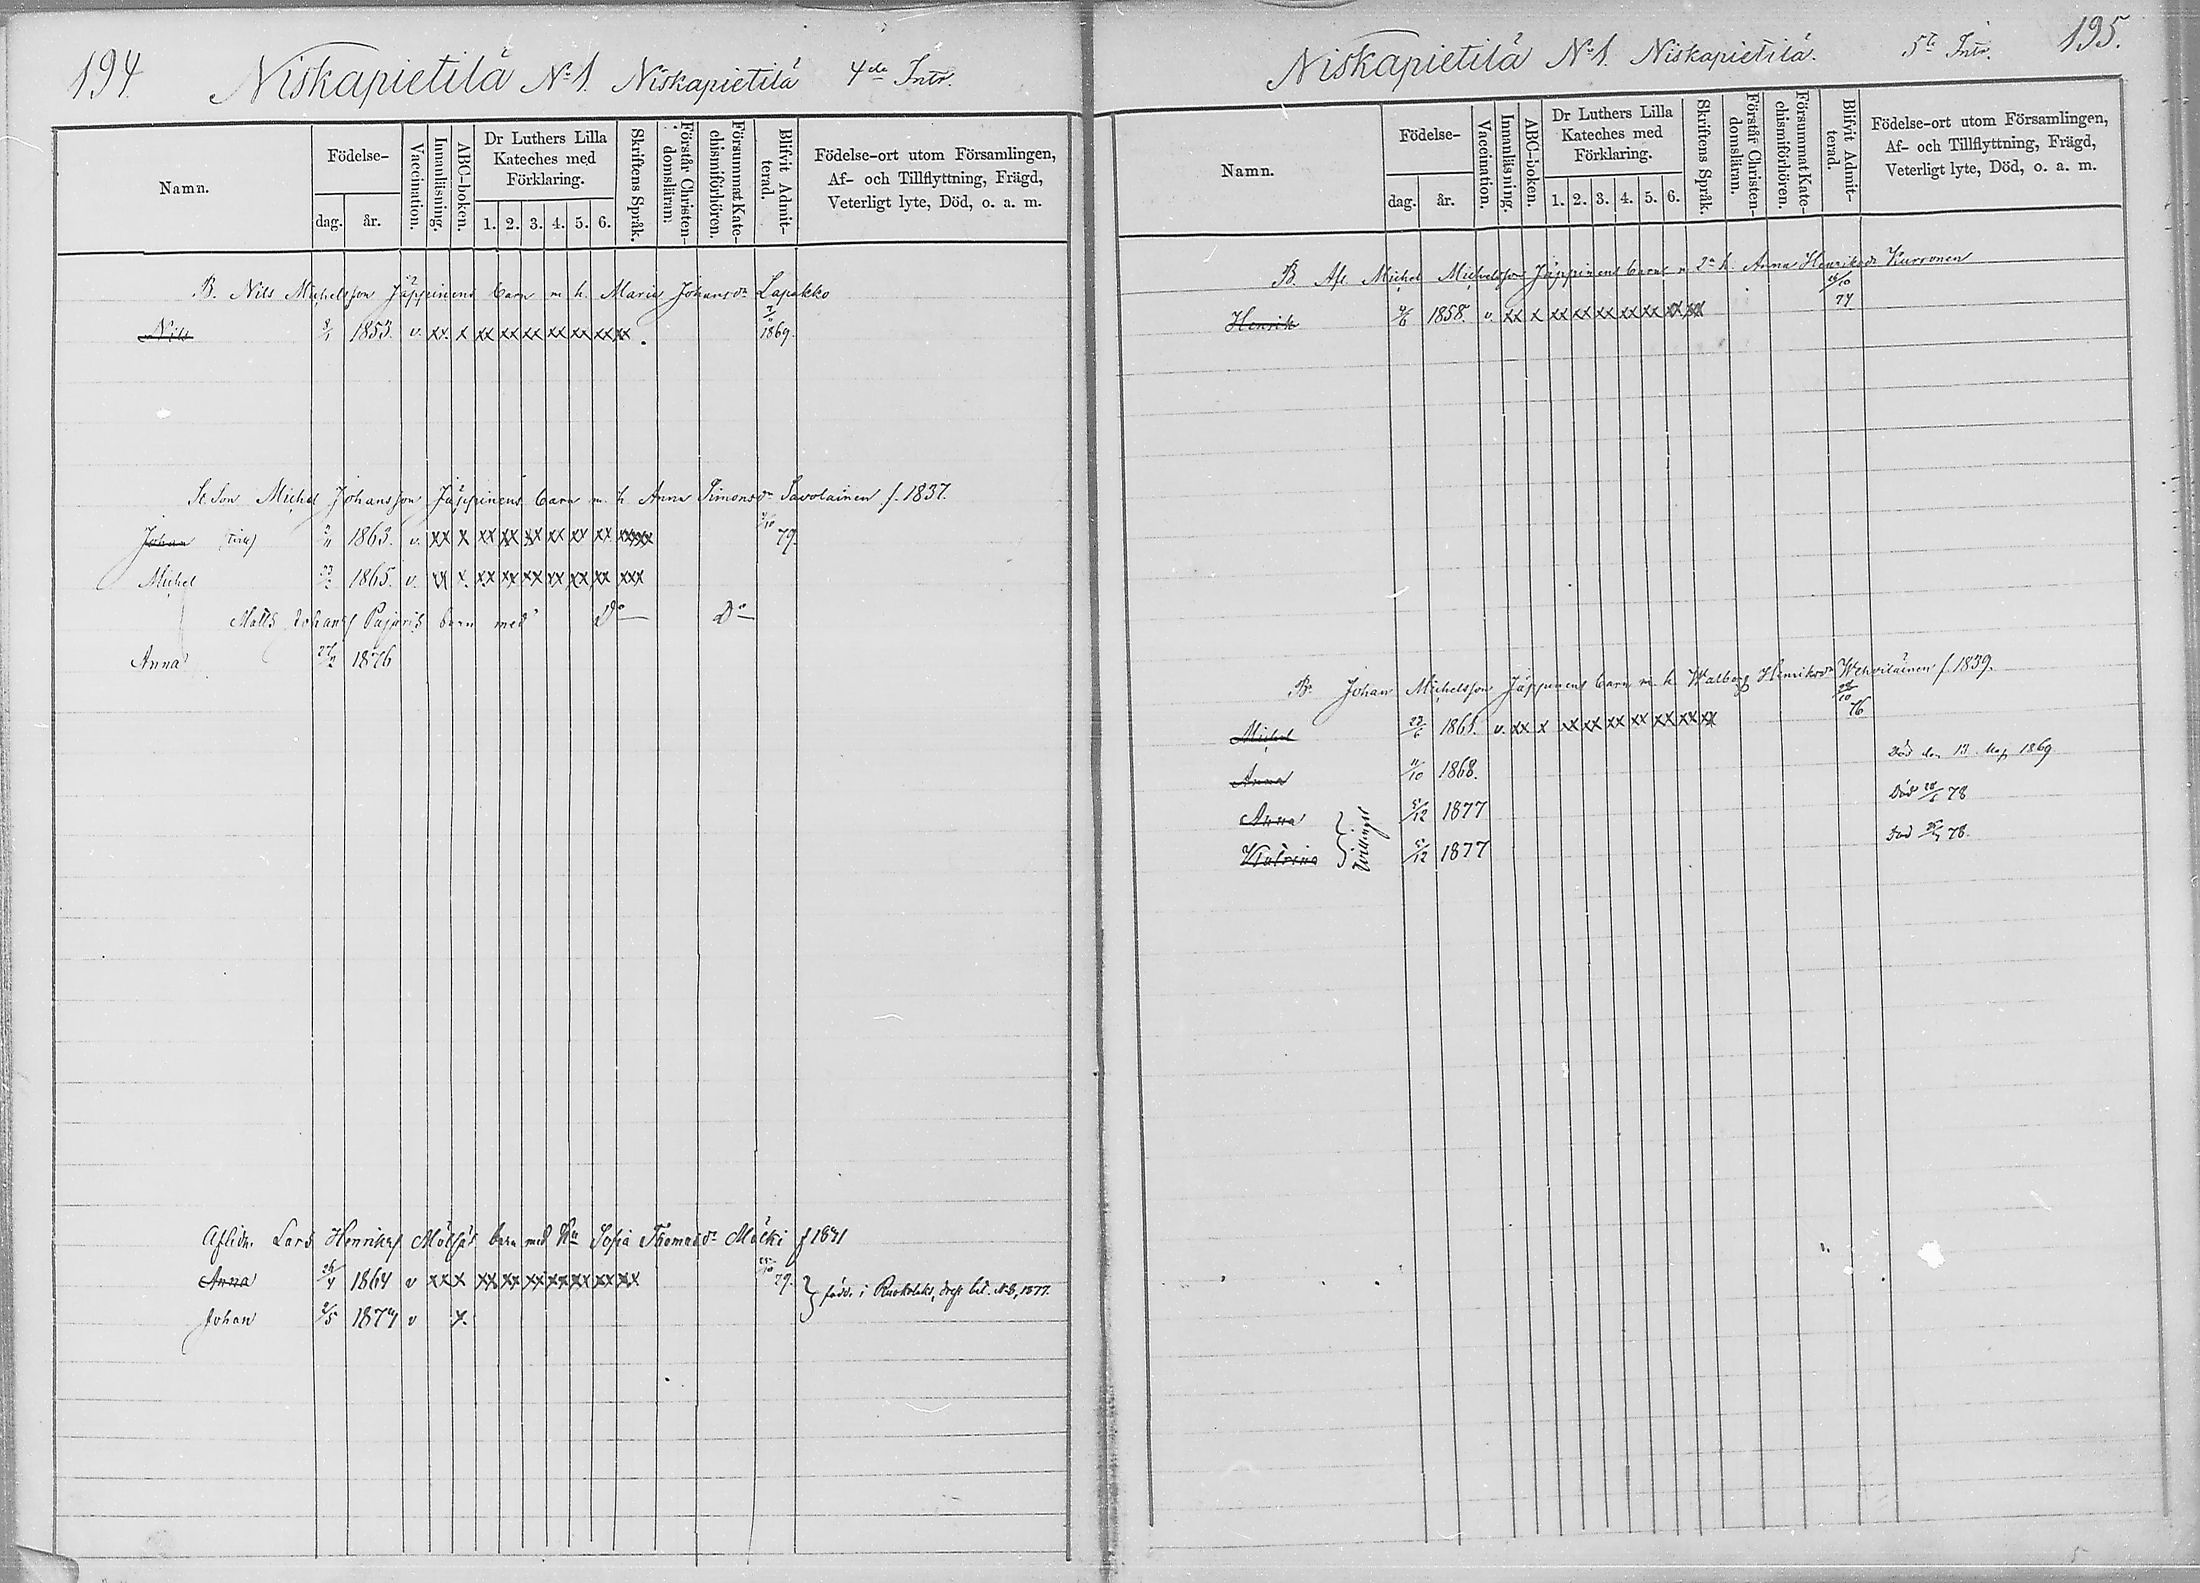 194. Niskapietilä No 1. Niskapietilä 4de Intr.
Namn. Födelse- dag. år. Vaccination. Innanläsning. ABC-boken. Dr Luthers Lilla Kateches med Förklaring. 1. 2. 3. 4. 5. 6. Skriftens Språk. Förstår Christendomsläran. Försummat Katechismiförhören. Blifvit Admitterad. Födelse-ort utom Församlingen, Af- och Tillflyttning, Frägd, Veterligt lyte, Död, o. a. m.
B. Nils Michelsson Jäppinens barn m. h. Maria Johansdr Lapakko
Nils 1853. v. xx x xx xx xx xx xx xx xx 1869.
St. Son Michel Johansson Jäppinens barn m. h. Anna Simonsdr Savolainen f. 1837.
Johan 1863. v. xx x xx xx xx xx xx xx xxxx 79.
Michel 1865. v. xx x xx xx xx xx xx xx xxx
Matts Johansf Pajaris barn med Do Do
Anna 1876
Aflidn. Lars Henriksf barn med Sofia Thomasdr f 1841
Anna 26/4 1864 v xx x xx xx xx xx xx xx xx 79. } född. i Ruokolaks,
Johan 2/5 1874 v x.
195.
Niskapietilä No 1. Niskapietilä. 5te Intr.
Namn. Födelse- dag. år. Vaccination. Innanläsning. ABC-boken. Dr Luthers Lilla Kateches med Förklaring. 1. 2. 3. 4. 5. 6. Skriftens Språk. Förstår Christendomsläran. Försummat Katechismiförhören. Blifvit Admitterad. Födelse-ort utom Församlingen, Af- och Tillflyttning, Frägd, Veterligt lyte, Död, o. a. m.
B. Afl. Michel Michelsson Jäppinens barn m 2a h. Anna Henriksdr Kurronen
Henrik 1858. v. xx x xx xx xx xx xx xx xx 74
B. Johan Michelsson Jäppinens barn m. h. Walborg Henriksdr Wehviläinen f. 1839.
Michel 1865. v. xx x xx xx xx xx xx xx xx 76
Anna 11/10 1868. Död den 13 Maj 1869
Anna 5/12 1877 Död 78
Katrina 5/12 1877 Död 78.